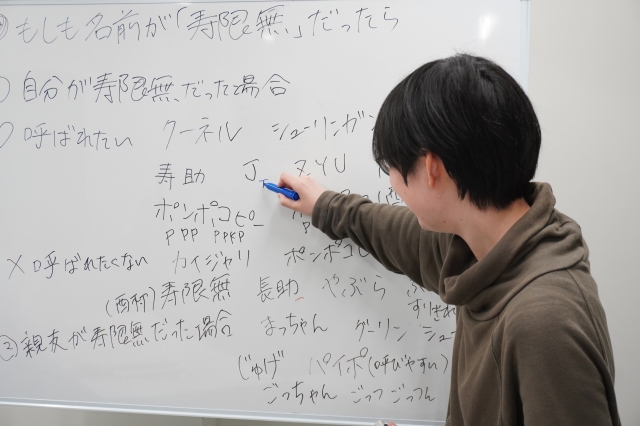 もしも名前が「寿限無」だったら
自分が寿限無だった場合
呼ばれたい クーネル シューリンガン
寿助 J ZYU
ポンポコピー
PPP PPKP
×呼ばれたくない カイジャリ ポンポコピ
(西村)寿限無 長助 やぶら
すりきれ
②親友が寿限無だった場合 まっちゃん グーリン シュー
じゅげ パイポ(呼びやすい)
ごっちゃん ごっつ ごっつん